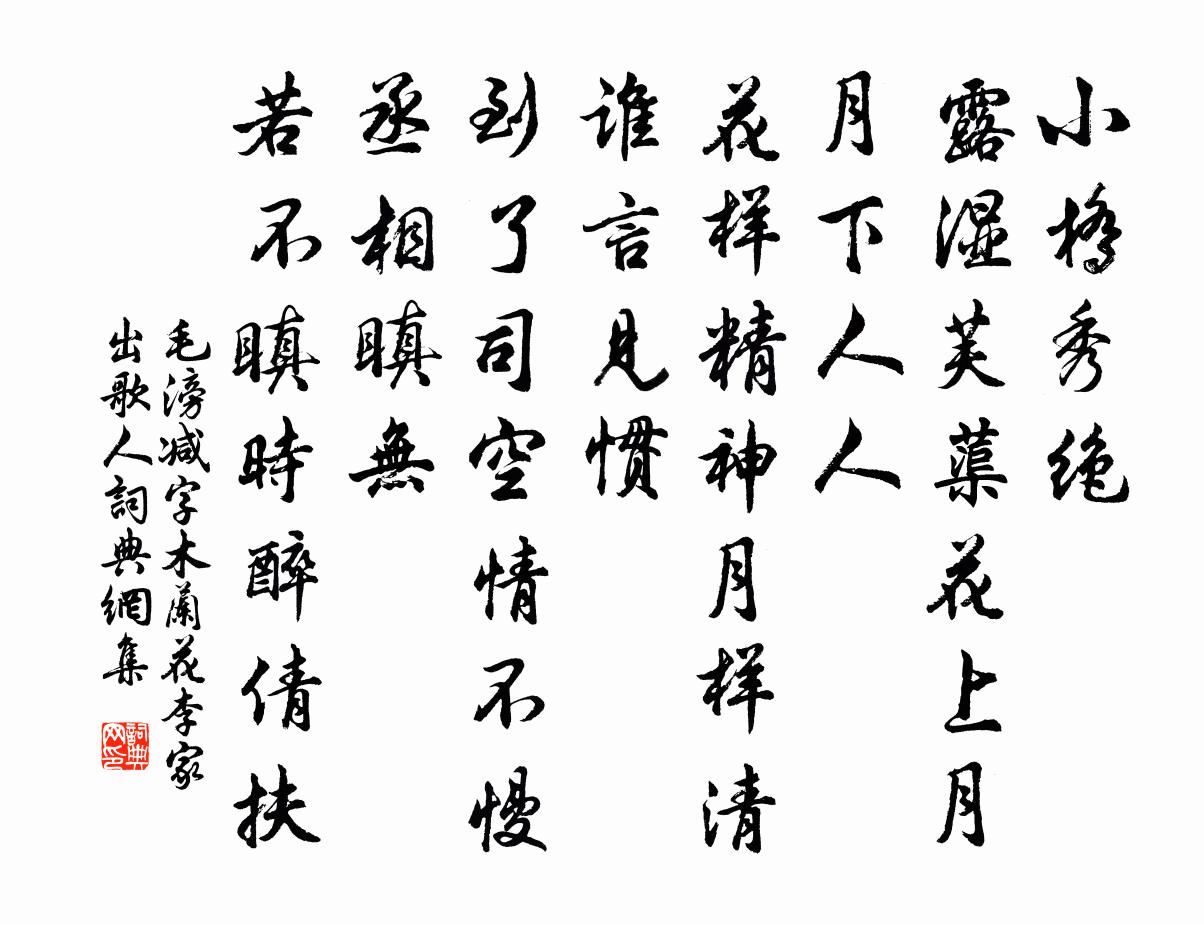 小橋秀絶
露濕芙蕖花上月
月下人人
花样精神月样清
誰言見慣
到了司空情不慢
丞相瞋無
若不瞋時醉倩扶
毛滂减字木蘭花李家
出歌人詞典網集
詞典网印